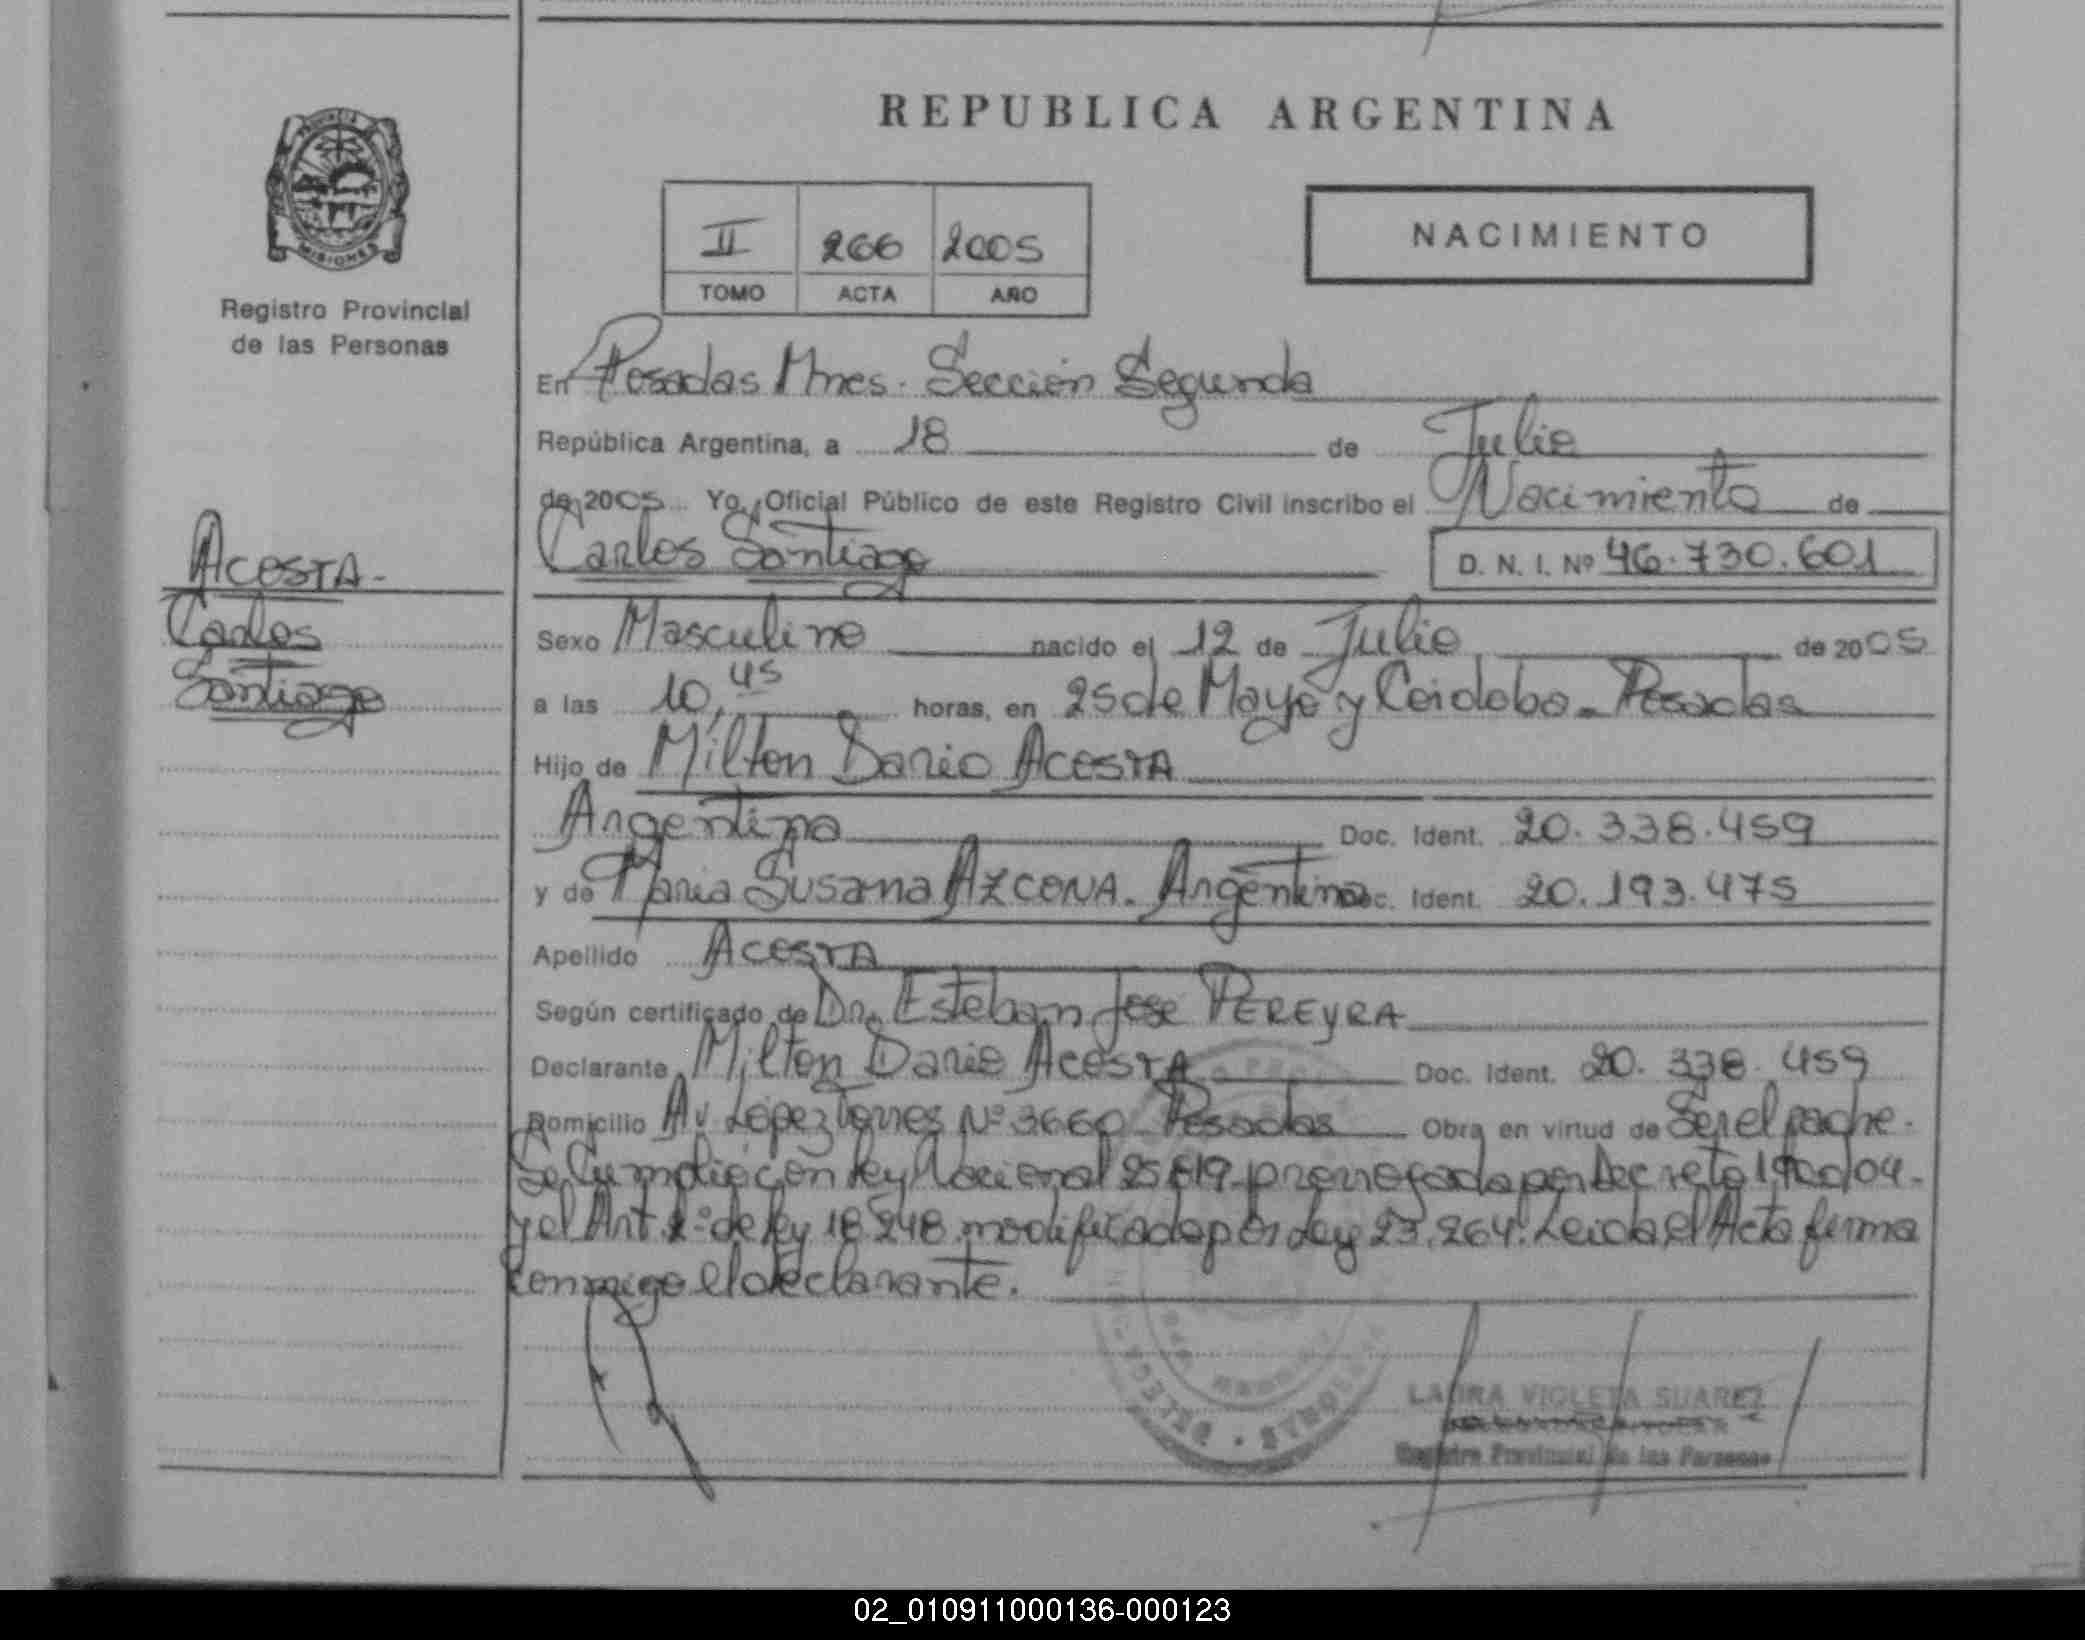 REPUBLICA ARGENTINA
PROVINCIA
MISIONES
Registro Provincial
de las Personas
II 266 2005
TOMO ACTA AÑO
NACIMIENTO
En Posadas Mnes. Sección Segunda
República Argentina, a 18 de Julio
de 2005 Yo, Oficial Público de este Registro Civil inscribo el Nacimiento de
Carlos Santiago D. N. I. Nº 46.730.601
ACOSTA-
Carlos
Santiago
Sexo Masculino nacido el 12 de Julio de 2005
a las 10,45 horas, en 25 de Mayo y Cordoba - Posadas
Hijo de Milton Dario ACOSTA
Argentino Doc. Ident. 20.338.459
y de Maria Susana AZCONA. Argentina Doc. Ident. 20.193.475
Apellido ACOSTA
Según certificado de Dr. Esteban Jose PEREYRA
Declarante Milton Dario ACOSTA Doc. Ident. 20.338.459
Domicilio Av. López Torres Nº 3660 Posadas Obra en virtud de Ser el padre.
Se Cumplio con Ley Nacional 25.819 prorrogada por Decreto 1.900/04.
y el Art. 2º de Ley 18.248 modificada por Ley 23.264. Leida el Acta firma
conmigo el declarante.
LAURA VIOLETA SUAREZ
Registro Provincial de las Personas
02_010911000136-000123